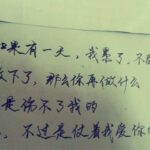 如果有一天，我累了，不
放下了，那么你再做什么
是伤不了我的
，不过是仗着我爱你